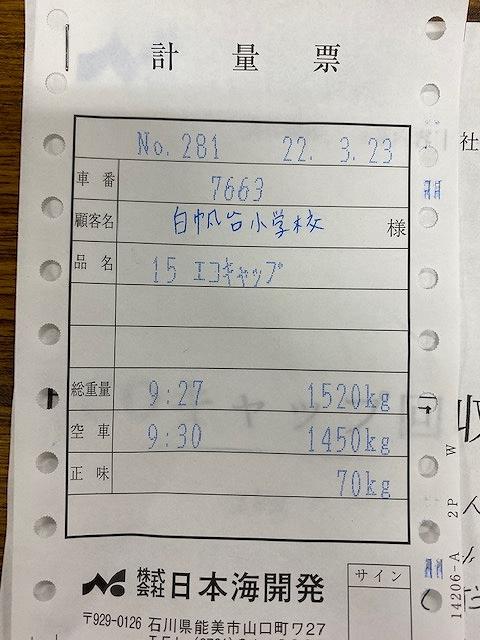 計量票
No. 281 22. 3.23
車番 7663
顧客名 白帆台小学校 様
品名 15 エコキャップ
総重量 9:27 1520kg
空車 9:30 1450kg
正味 70kg
株式会社 日本海開発
サイン
〒929-0126 石川県能美市山口町ワ27
14206-A 2P W
社